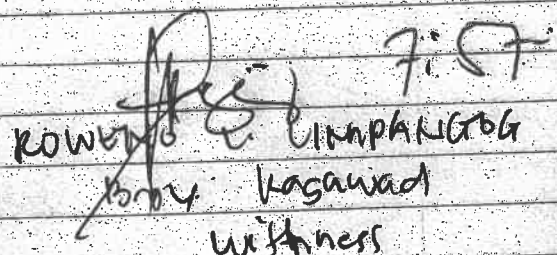 7:57
ROWENO E. LINAPANGOG
Brgy. kagawad
withness